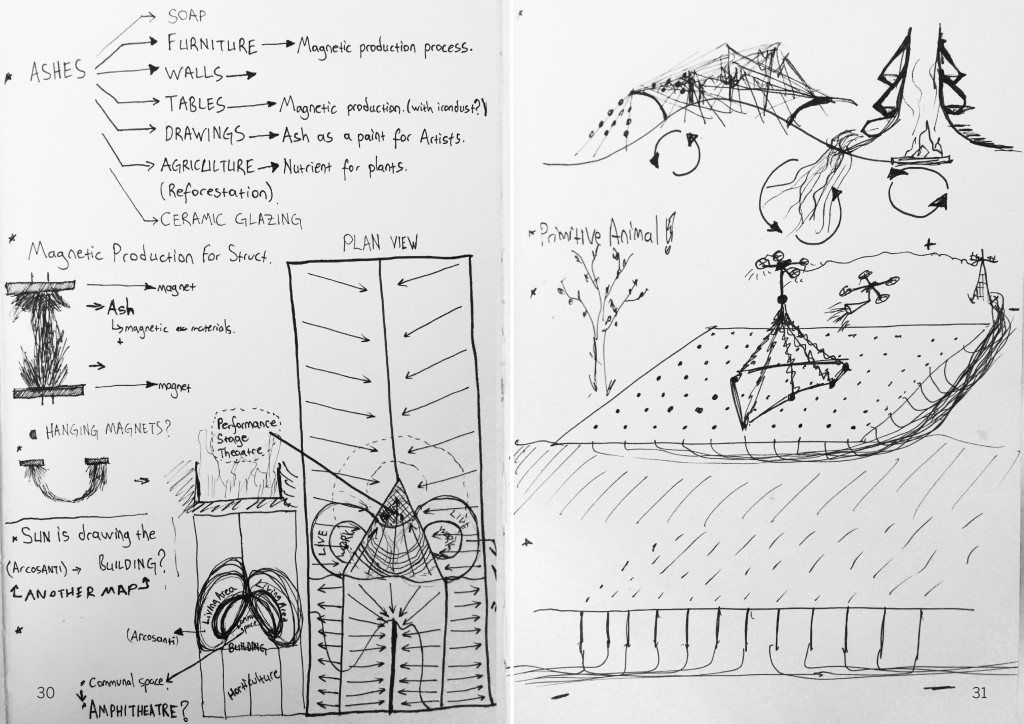 SOAP
* ASHES
FURNITURE → Magnetic production process.
WALLS →
TABLES → Magnetic production. (with irondust?)
DRAWINGS → Ash as a paint for Artists.
AGRICULTURE → Nutrient for plants.
(Reforestation)
CERAMIC GLAZING
* Magnetic Production for Struct.
magnet
→ Ash
↳ magnetic materials.
+
magnet
HANGING MAGNETS?
* SUN is drawing the
(ARCOSANTI) → BUILDING?
ANOTHER MAP
(Arcosanti)
Communal space?
* AMPHITHEATRE?
30
Performance
Stage
Theatre
Living Area
Living Area
space
BUILDING
Horticulture
PLAN VIEW
LIVE
WORK
LIVE
* Primitive Animal
+
-
31